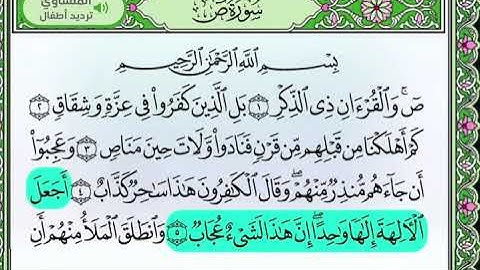 المنشاوي
ترديد أطفال
سورة ص
بِسْمِ ٱللَّهِ ٱلرَّحْمَٰنِ ٱلرَّحِيمِ
صٓ ۚ وَٱلْقُرْءَانِ ذِى ٱلذِّكْرِ ١ بَلِ ٱلَّذِينَ كَفَرُوا۟ فِى عِزَّةٍ وَشِقَاقٍ ٢
كَمْ أَهْلَكْنَا مِن قَبْلِهِم مِّن قَرْنٍ فَنَادَوا۟ وَّلَاتَ حِينَ مَنَاصٍ ٣ وَعَجِبُوٓا۟
أَن جَآءَهُم مُّنذِرٌ مِّنْهُمْ ۖ وَقَالَ ٱلْكَٰفِرُونَ هَٰذَا سَٰحِرٌ كَذَّابٌ ٤ أَجَعَلَ
ٱلْءَالِهَةَ إِلَٰهًا وَٰحِدًا ۖ إِنَّ هَٰذَا لَشَىْءٌ عُجَابٌ ٥ وَٱنطَلَقَ ٱلْمَلَأُ مِنْهُمْ أَنِ